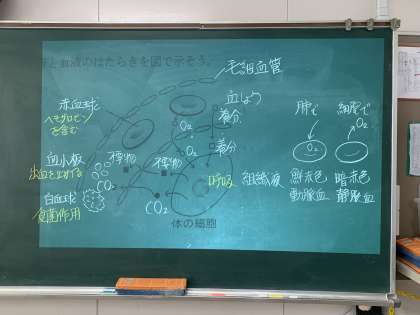 と血液のはたらきを図で示そう。
毛細血管
赤血球
ヘモグロビン
を含む
血しょう
養分
O₂
養分
O₂
血小板
出血を止める
不要物
不要物
CO₂
白血球
食菌作用
CO₂
呼吸
組織液
体の細胞
肺で
O₂
鮮赤色
動脈血
細胞で
O₂
暗赤色
静脈血